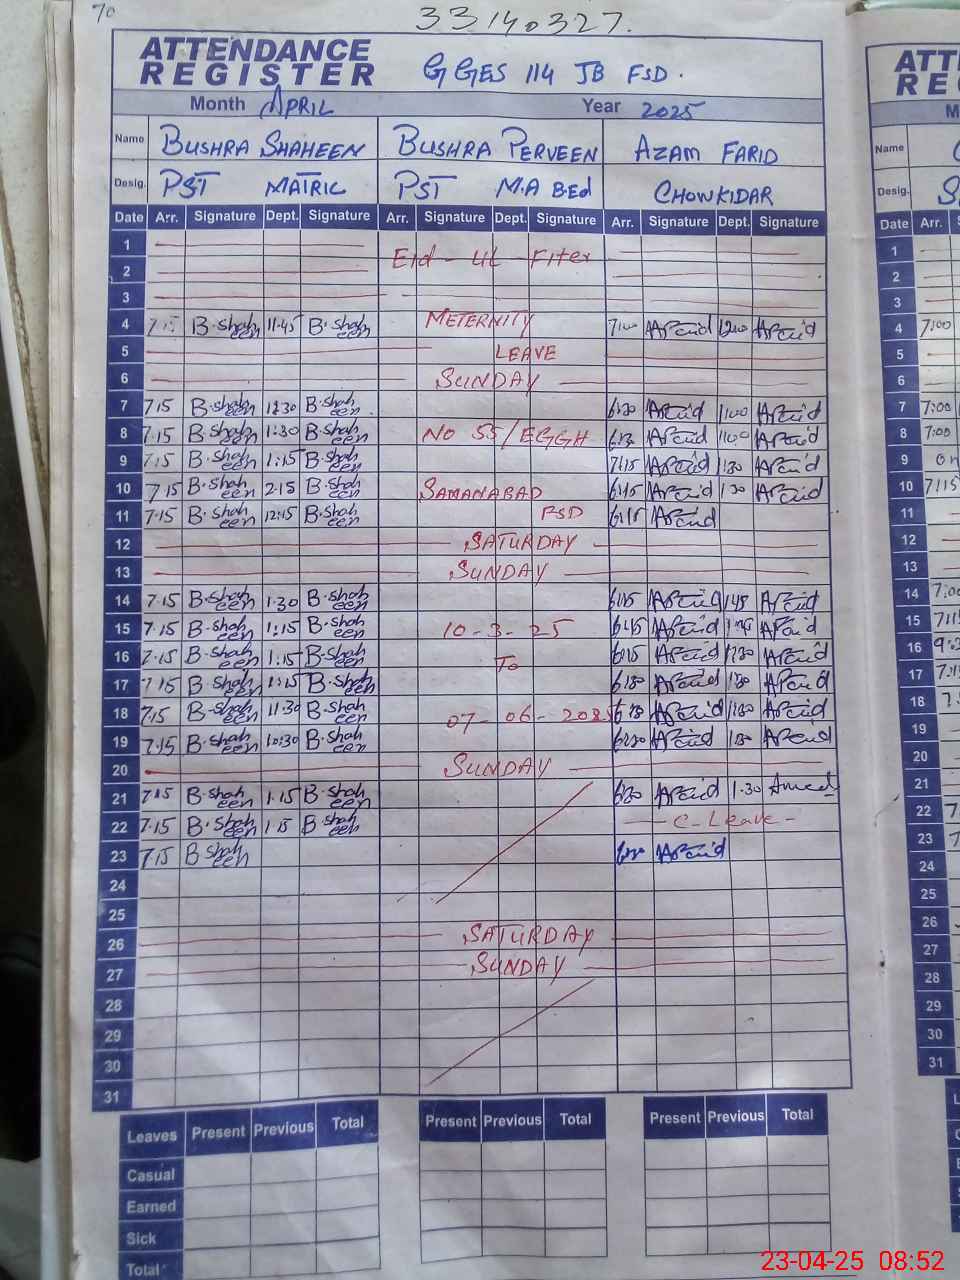 70
33140327.
ATTENDANCE
REGISTER
GGES 114 JB FSD.
Month APRIL Year 2025
Name BUSHRA SHAHEEN BUSHRA PERVEEN AZAM FARID
Desig. PST MATRIC PST M.A BEd CHOWKIDAR
Date Arr. Signature Dept. Signature Arr. Signature Dept. Signature Arr. Signature Dept. Signature
1
Eid - ul - Fiter
2
3
4 B.shaheen 11.45 B.shaheen METERNITY 7:00 AFarid 12:00 AFarid
5 LEAVE
6 SUNDAY
7 7.15 B.shaheen B.shaheen AFarid 1:00 AFarid
8 7.15 B.shaheen 1:30 B.shaheen NO 55/EGGH AFarid 1:00 AFarid
9 7.15 B.shaheen 1:15 B.shaheen 7:15 AFarid AFarid
10 7.15 B.shaheen 2.15 B.shaheen SAMANABAD 6:45 AFarid 1 30 AFarid
11 7.15 B.shaheen 12:15 B.shaheen FSD AFarid
12 SATURDAY
13 SUNDAY
14 7.15 B.shaheen 1.30 B.shaheen AFarid AFarid
15 7.15 B.shaheen 1:15 B.shaheen 10-3-25 6:45 AFarid AFarid
16 7.15 B.shaheen 1:15 B.shaheen To AFarid AFarid
17 7.15 B.shaheen 1:15 B.shaheen AFarid AFarid
18 7.15 B.shaheen 11.30 B.shaheen 07-06-2025 AFarid AFarid
19 7.15 B.shaheen 10:30 B.shaheen AFarid AFarid
20 SUNDAY
21 7.15 B.shaheen 1.15 B.shaheen AFarid 1.30
22 7.15 B.shaheen 1.15 B.shaheen C-Leave-
23 7.15 B.shaheen AFarid
24
25
26 SATURDAY
27 SUNDAY
28
29
30
31
Leaves Present Previous Total Present Previous Total Present Previous Total
Casual
Earned
Sick
Total
ATT
RE
Name
Desig.
Date Arr.
1
2
3
4 7:00
5
6
7 7:00
8 7:00
9
10 7:15
11
12
13
14
15
16
17
18
19
20
21
22
23
24
25
26
27
28
29
30
31
23-04-25 08:52